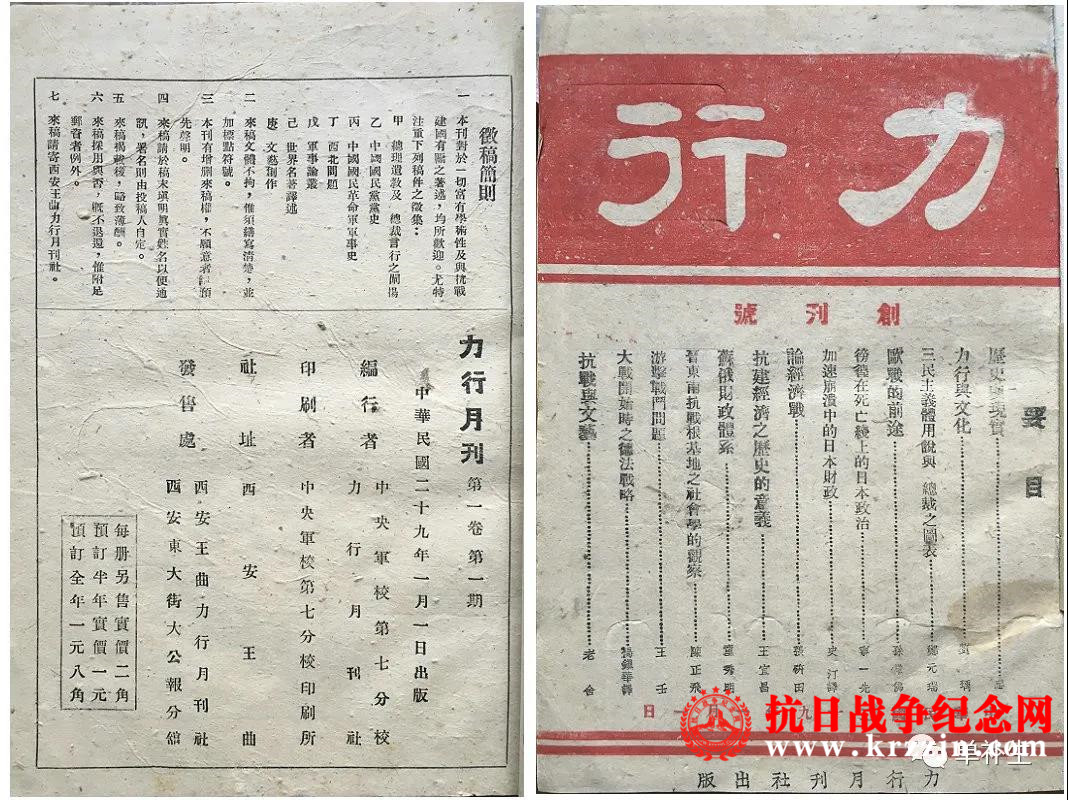 徵稿簡則
一 本刊對於一切富有學術性及與抗戰
建國有關之著述,均所歡迎。尤特
注重下列稿件之徵集:
甲 總理遺敎及 總裁言行之闡揚
乙 中國國民黨黨史
丙 中國國民革命軍軍事史
丁 西北問題
戊 軍事論叢
己 世界名著譯述
庚 文藝創作
二 來稿文體不拘,惟須繕寫清楚,並
加標點符號。
三 本刊有增删來稿權,不願意者請預
先聲明。
四 來稿請於稿末塡明眞實姓名以便通
訊,署名則由投稿人自定。
五 來稿揭載後,略致薄酬。
六 來稿採用與否,槪不退還,惟附足
郵資者例外。
七 來稿請寄西安王曲力行月刊社。
力行月刊 第一卷第一期
中華民國二十九年一月一日出版
編行者 中央軍校第七分校
力行月刊社
印刷者 中央軍校第七分校印刷所
社址 西安王曲
發售處 西安王曲力行月刊社
西安東大街大公報分館
每册另售實價二角
預訂半年實價一元
預訂全年一元八角
力行
創刊號
要目
歷史與現實
力行與文化
三民主義體用說與 總裁之圖表 鄭元瑞
歐戰的前途
徬徨在死亡綫上的日本政治
加速崩潰中的日本財政 史汀譯
論經濟戰 張研田
抗建經濟之歷史的意義 王宜昌
蘇俄財政體系
晉東南抗戰根基地之社會學的觀察 陳正飛
游擊戰鬥問題 王壬
大戰開始時之德法戰略 楊鎭華譯
抗戰與文藝 老舍
力行月刊社出版
抗日战争纪念网
www.krzzjn.com
单补生